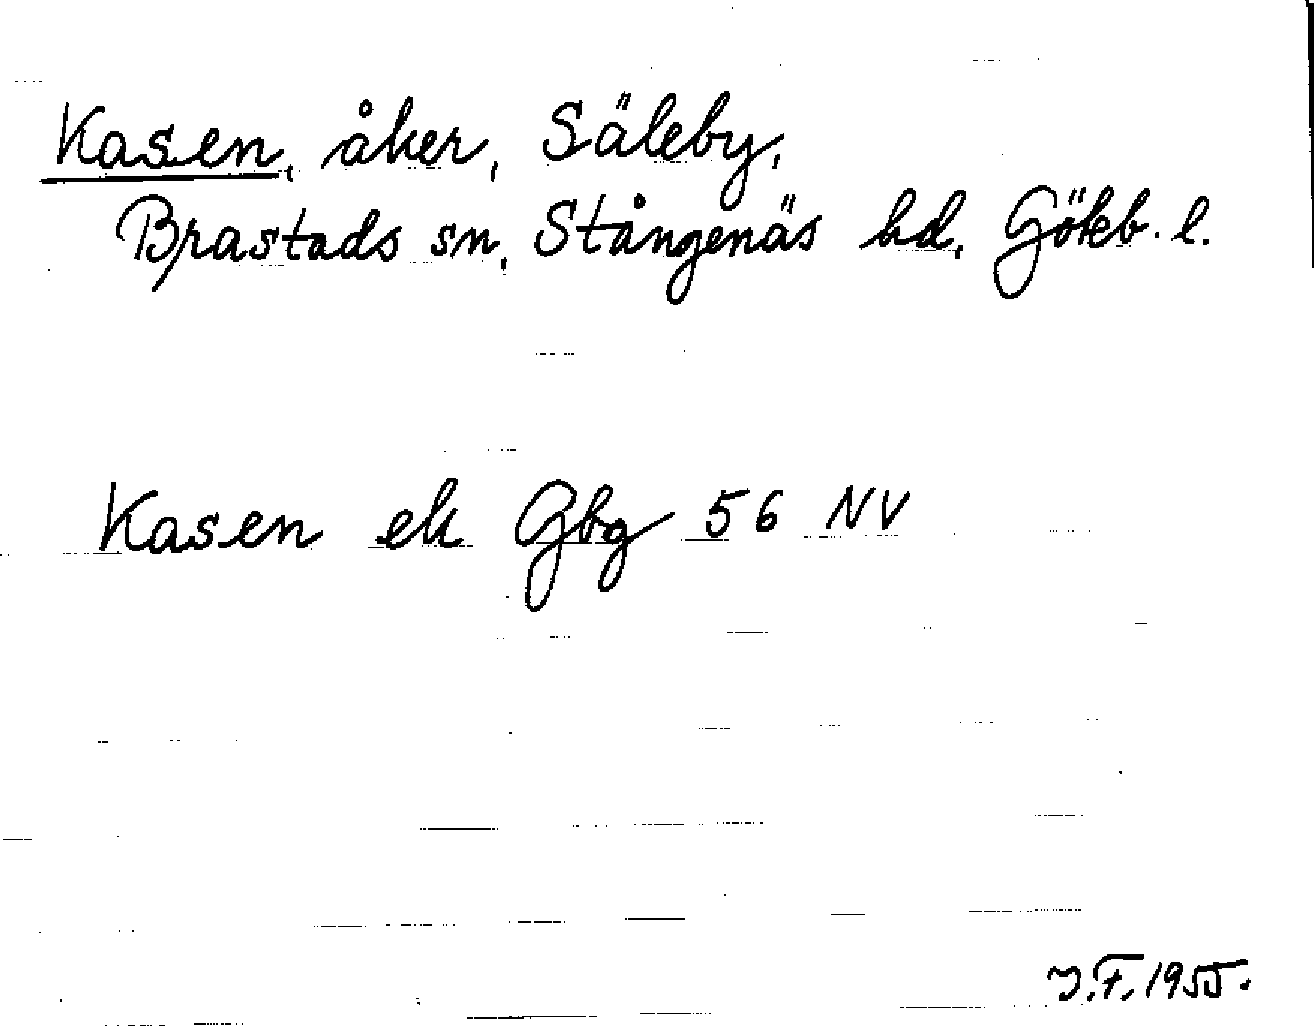 Kasen, åker, Säleby,
Brastads sn, Stångenäs hd, Göteb. l.
Kasen ek Gbg 56 NV
J.F. 1955.